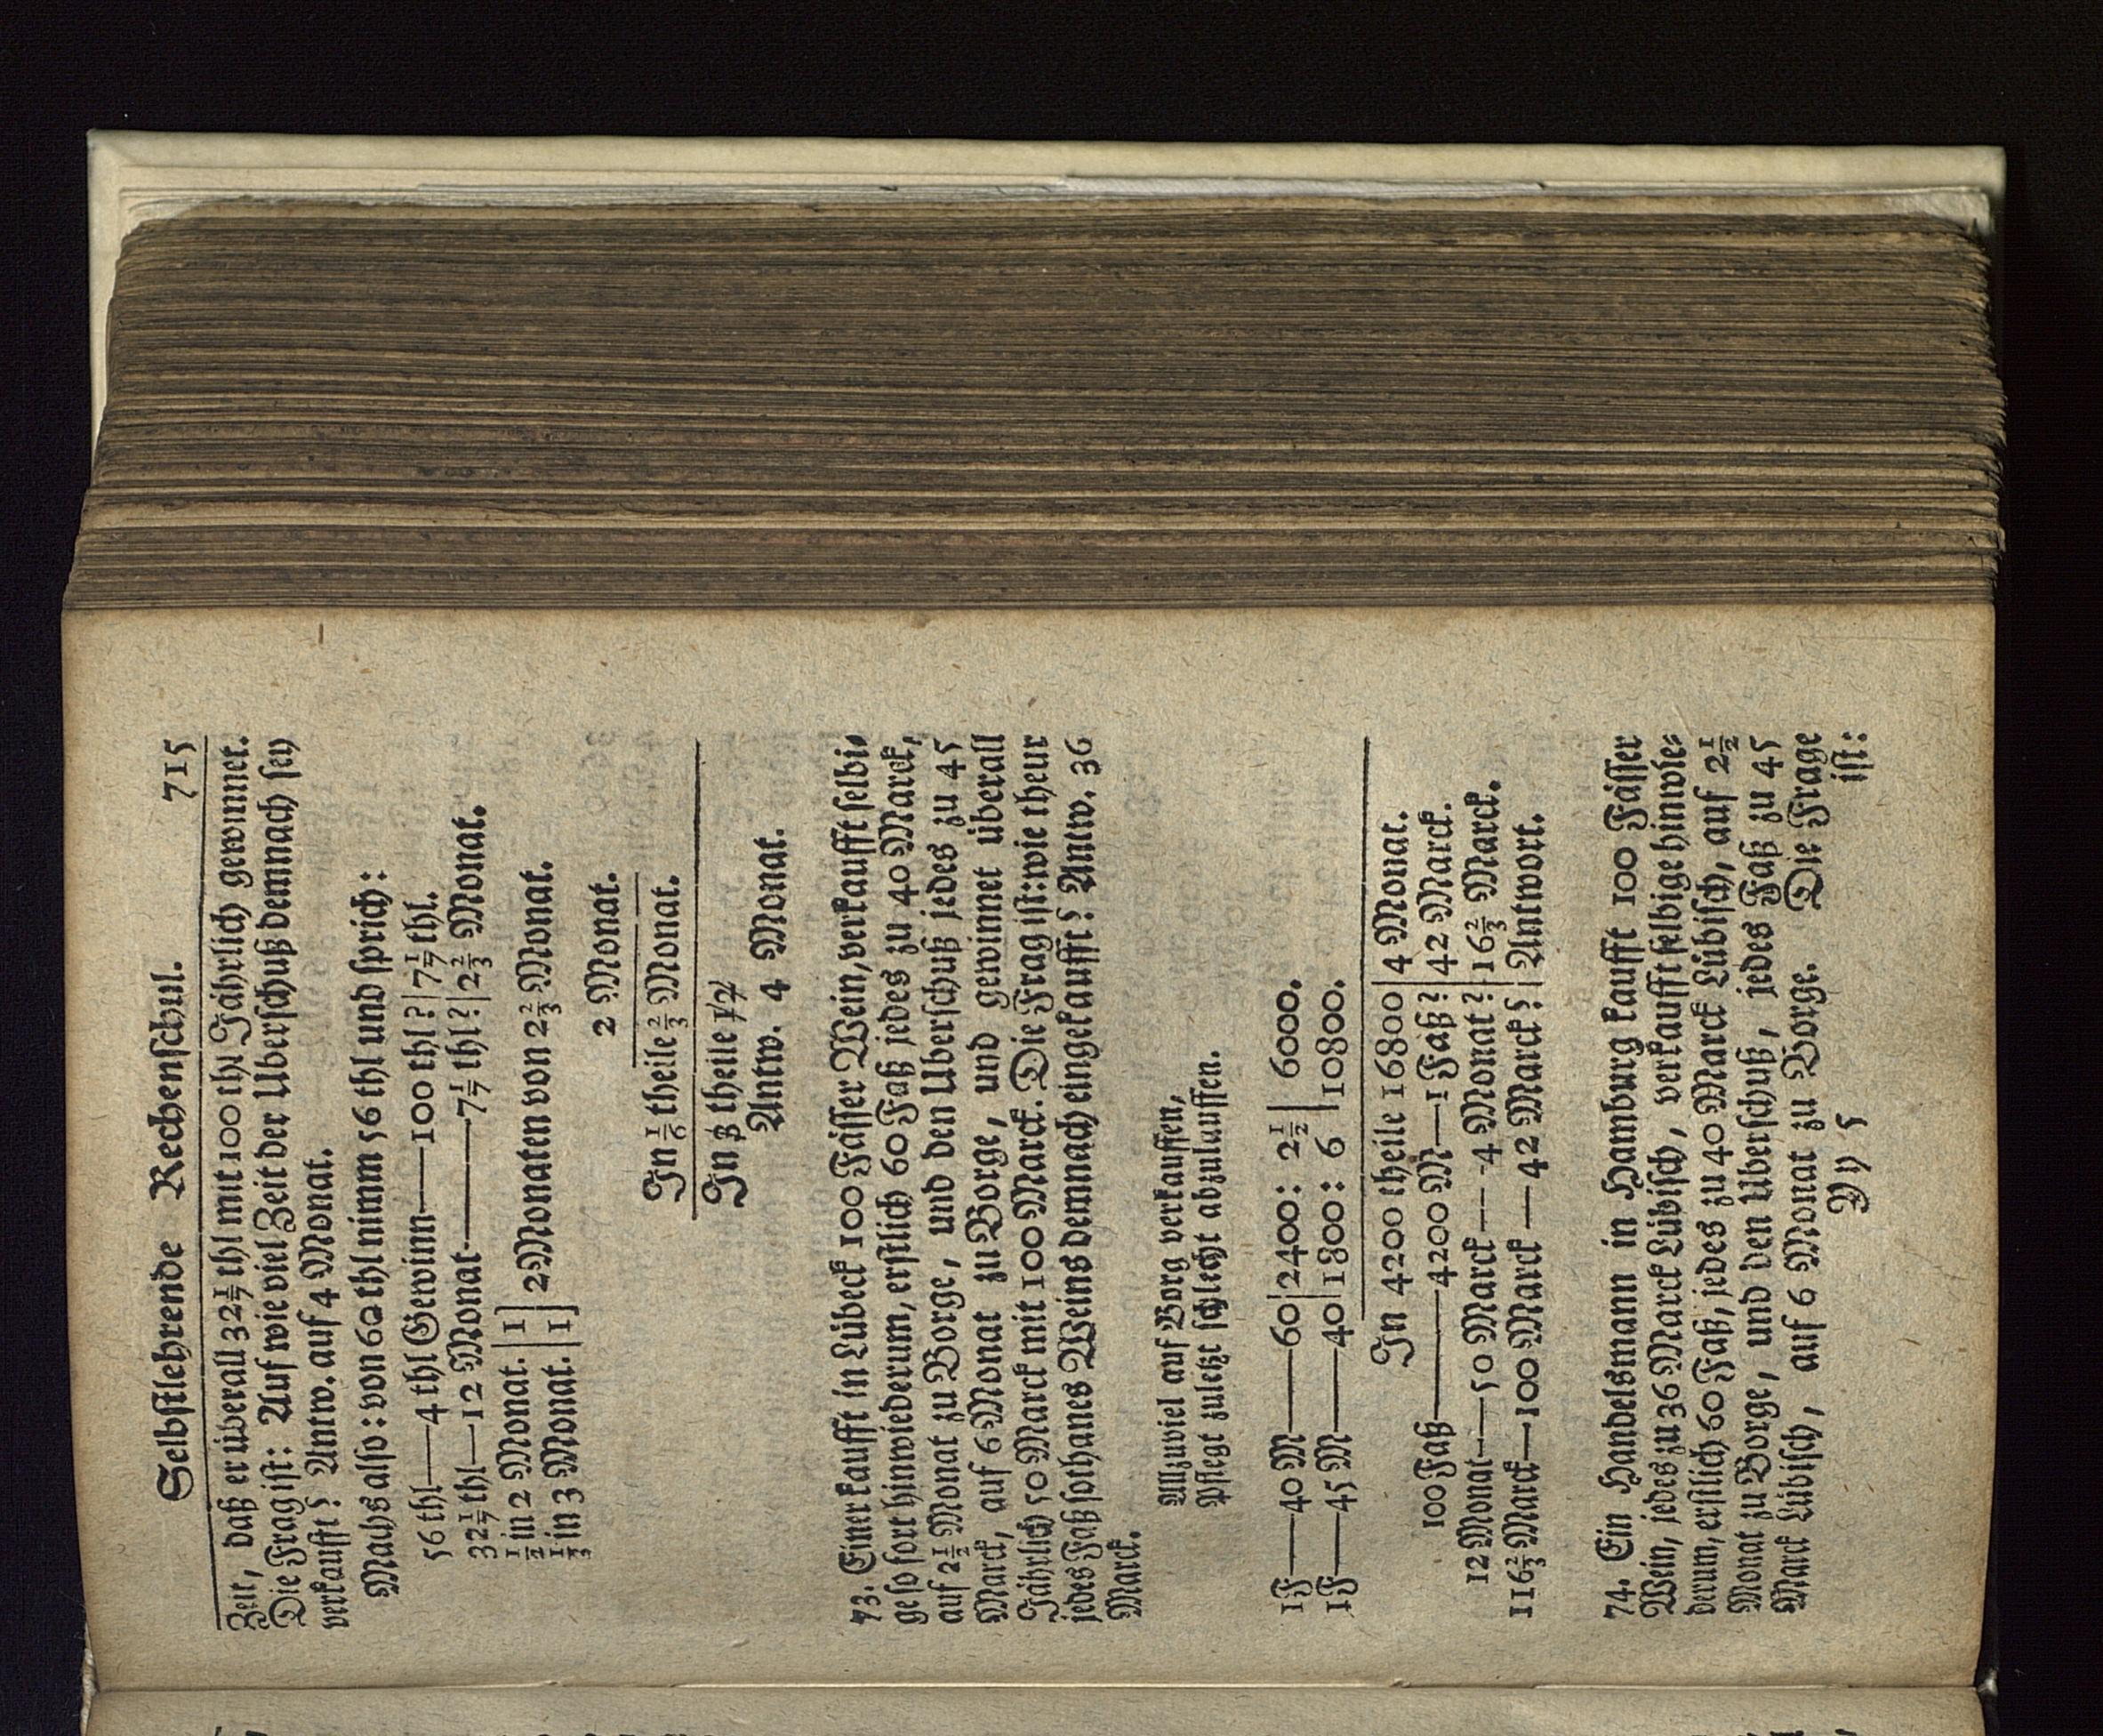 Selbstlehrende Rechenschul. 715
Zeit, daß er überall 32 1/7 thl mit 100 thl Jährlich gewinnet.
Die Frag ist: Auf wie viel Zeit der Uberschuß demnach sey
verkaufft? Antw. auf 4 Monat.
Machs also: von 60 thl nimm 56 thl und sprich:
56 thl—4 thl Gewinn—100 thl? | 7 1/7 thl.
32 1/7 thl—12 Monat—7 1/7 thl? | 2 2/3 Monat.
1/2 in 2 Monat. | 1 ]
1/3 in 3 Monat. | 1 ] 2 Monaten von 2 2/3 Monat.
2 Monat.
In 1/6 theile 2/3 Monat.
In 3 theile 12
Antw. 4 Monat.
73. Einer kaufft in Lübeck 100 Fässer Wein, verkaufft selbi-
ge so fort hinwiederum, erstlich 60 Faß jedes zu 40 Marck,
auf 2 1/2 Monat zu Borge, und den Uberschuß jedes zu 45
Marck, auf 6 Monat zu Borge, und gewinnet überall
Jährlich 50 Marck mit 100 Marck. Die Frag ist: wie theur
jedes Faß sothanes Weins demnach eingekaufft? Antw. 36
Marck.
Allzuviel auf Borg verkauffen,
Pflegt zuletzt schlecht abzulauffen.
1 F—40 M—60 | 2400: 2 1/2 | 6000.
1 F—45 M—40 | 1800: 6 | 10800.
In 4200 theile 16800 | 4 Monat.
100 Faß—4200 M—1 Faß? | 42 Marck.
12 Monat—50 Marck—4 Monat? | 16 2/3 Marck.
116 2/3 Marck—100 Marck—42 Marck? | Antwort.
74. Ein Handelsmann in Hamburg kaufft 100 Fässer
Wein, jedes zu 36 Marck Lübisch, verkaufft selbige hinwie-
derum, erstlich 60 Faß, jedes zu 40 Marck Lübisch, auf 2 1/2
Monat zu Borge, und den Uberschuß, jedes Faß zu 45
Marck Lübisch, auf 6 Monat zu Borge. Die Frage
Yy 5 ist: